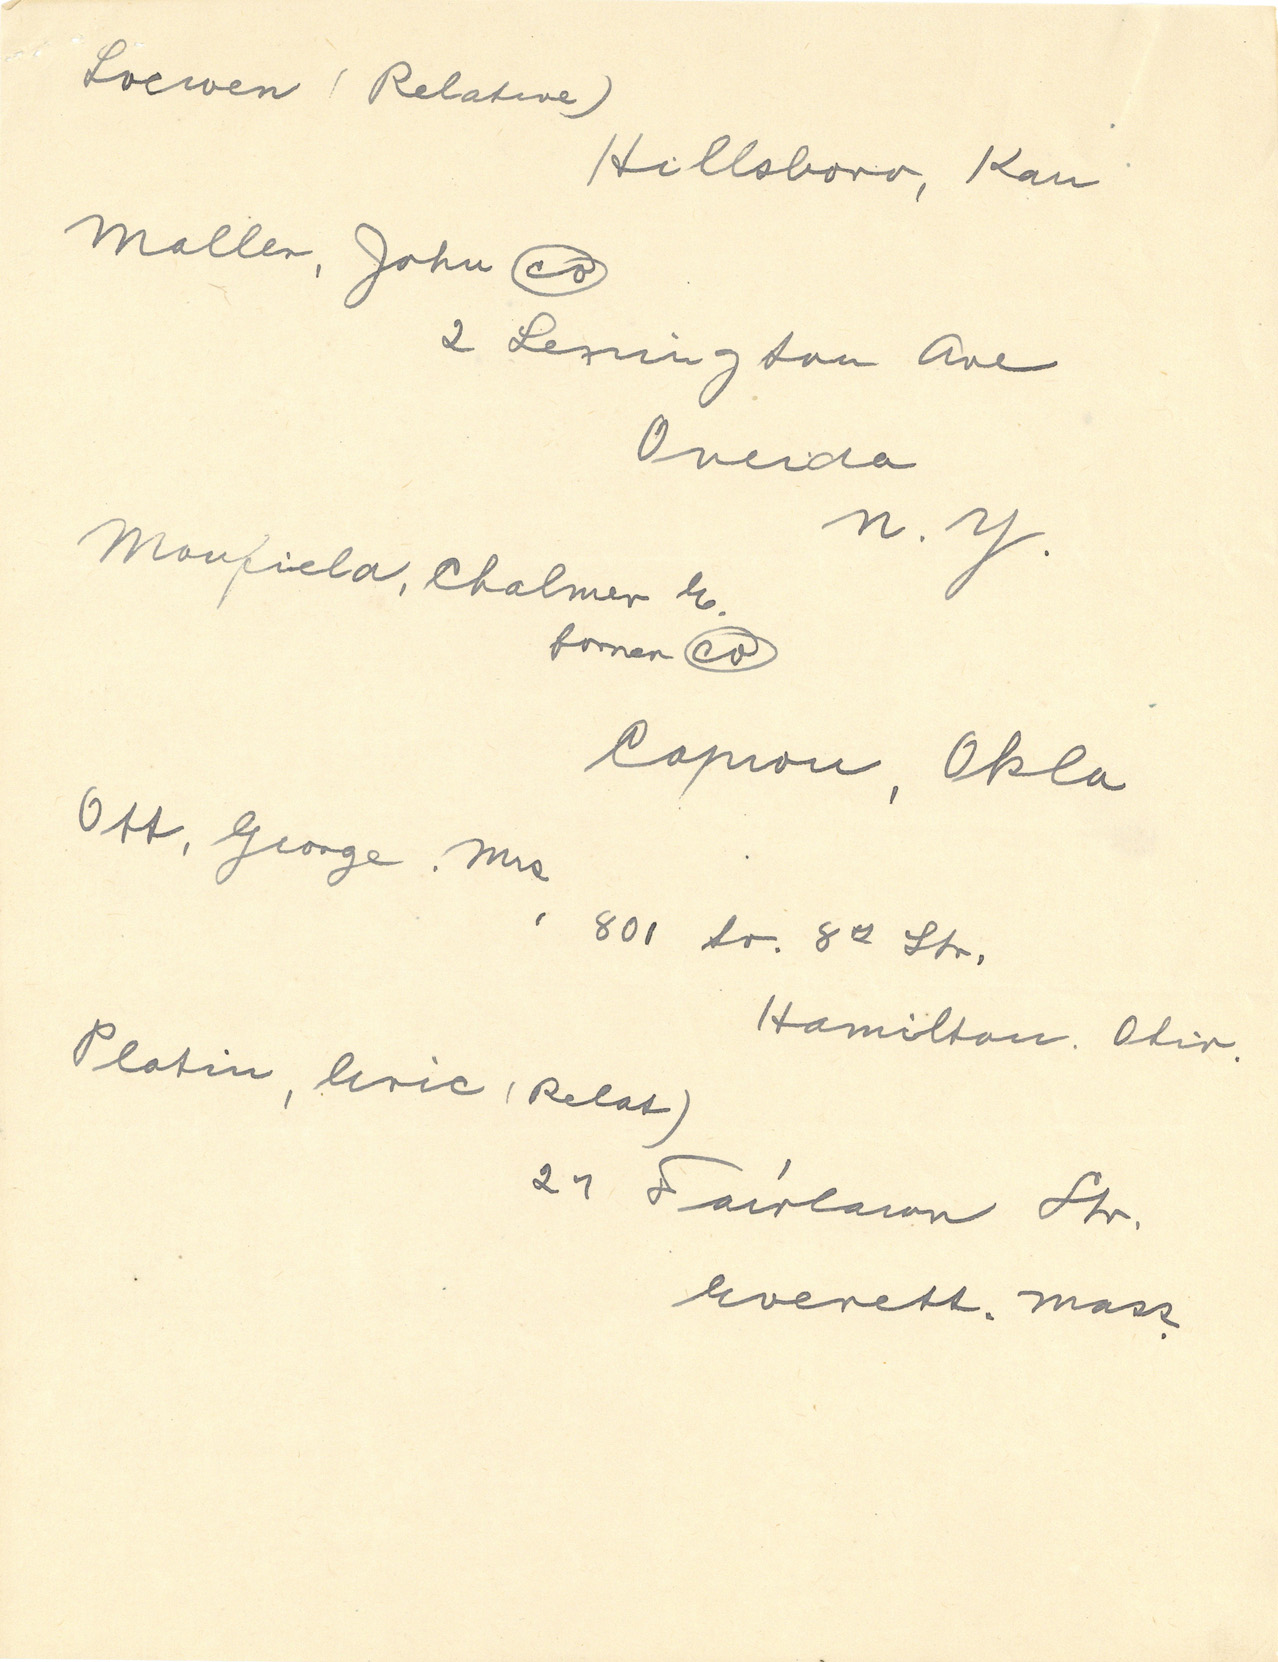 Loewen (Relative)
Hillsboro, Kan
Maller, John CO
2 Lexington Ave
Oneida
N. Y.
Monfield, Chalmer E.
former CO
Capron, Okla
Ott, George . Mrs
801 So. 8th Str.
Hamilton. Ohio.
Platin, Eric (Relat)
27 Fairlawn Str.
Everett. Mass.